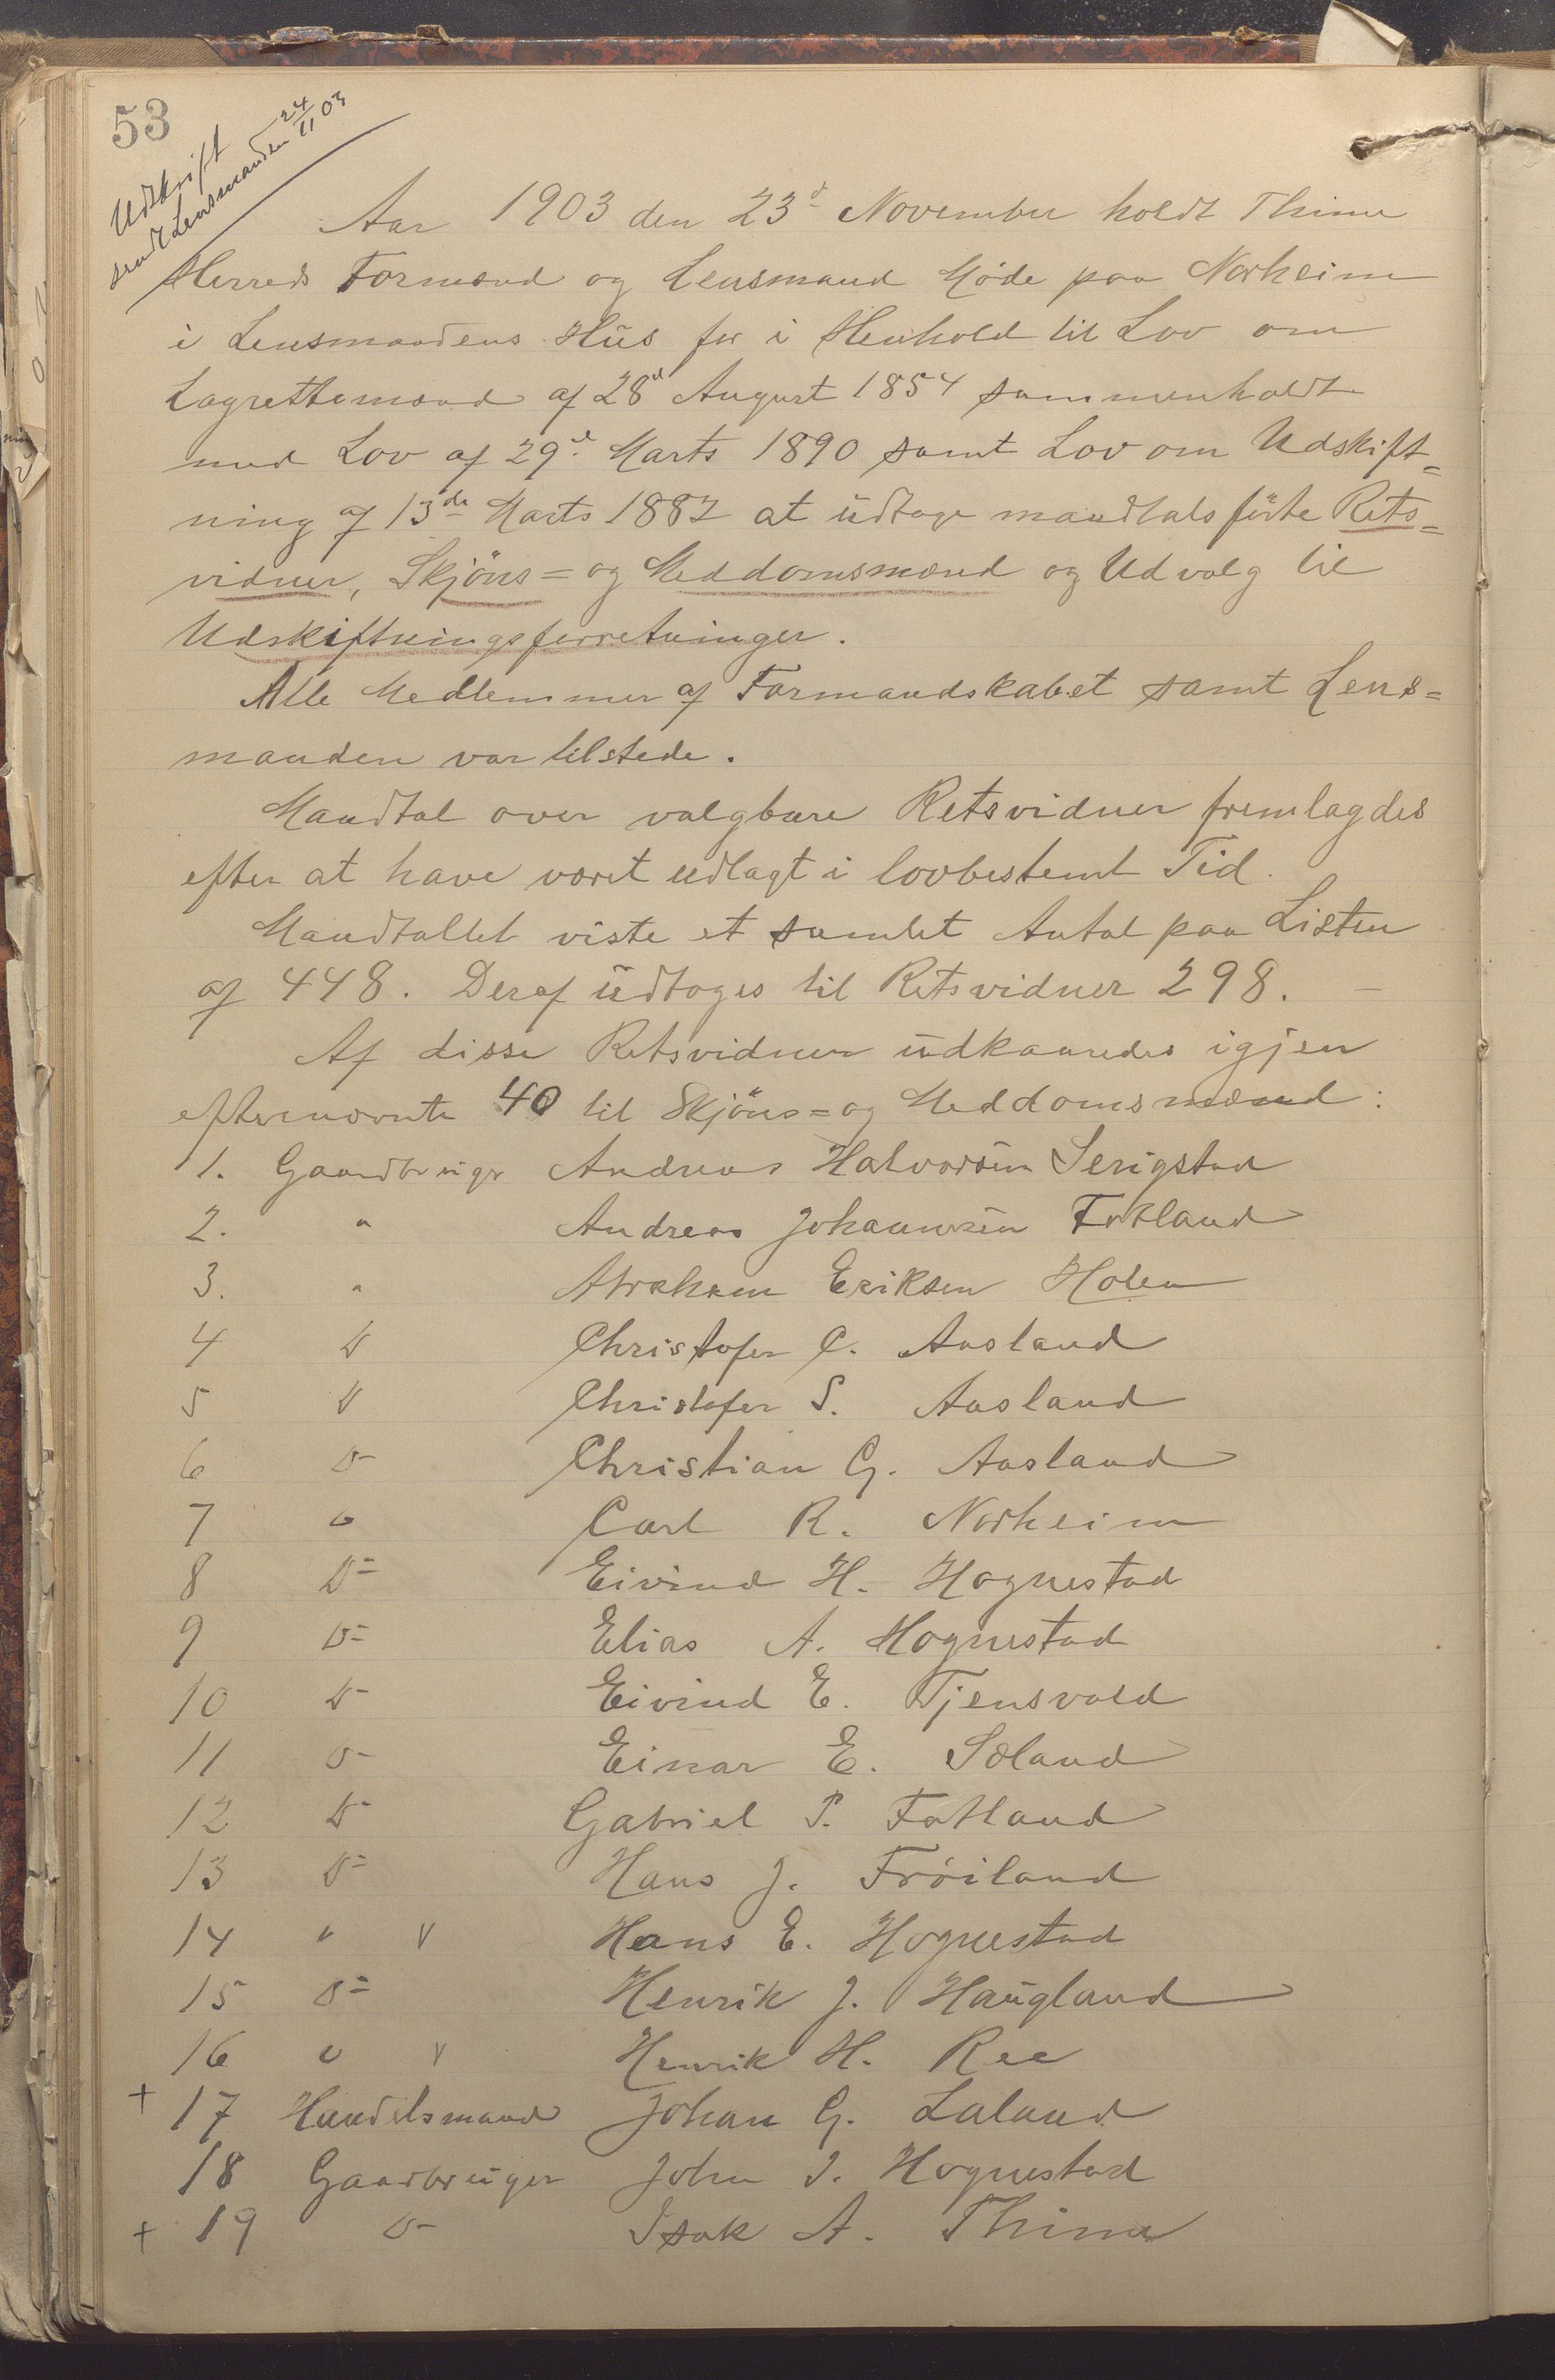 53
Udskrift
sendt Lensmanden 24/11 03
Aar 1903 den 23d November holdt Thime
Herreds Formænd og Lensmand Møde paa Norheim
i Lensmandens Hüs for i Henhold til Lov om
Lagrettemænd af 28d August 1854 sammenholdt
med Lov af 29d Marts 1890 samt Lov om Udskift=
ning af 13de Marts 1882 at üdtage mandtalsförte Rets=
vidner, Skjöns= og Meddomsmænd og Udvalg til
Udskiftningsforretninger.
Alle Medlemmer af Formandskabet samt Lens=
manden var tilstede.
Mandtal over valgbare Retsvidner fremlagdes
efter at have været udlagt i lovbestemt Tid.
Mandtallet viste et samlet Antal paa Listen
af 448. Deraf üdtoges til Retsvidner 298. —
Af disse Retsvidner üdkaaredes igjen
efternævnte 40 til Skjöns= og Meddomsmænd:
1. Gaardbrüger Andreas Halvorsen Serigstad
2. " Andreas Johannesen Fotland
3. " Abraham Eriksen Holen
4 D Christofer C. Aasland
5 D Christofer S. Aasland
6 D- Christian G. Aasland
7 " Carl R. Norheim
8 D= Eivind H. Hognestad
9 D= Elias A. Hognestad
10 D- Eivind E. Tjensvold
11 D- Einar E. Sæland
12 D- Gabriel P. Fotland
13 D= Hans J. Fröiland
14 " V Hans E. Hognestad
15 D= Henrik J. Haügland
16 " V Henrik H. Ree
+ 17 Handelsmand Johan G. Laland
18 Gaardbrüger John I. Hognestad
+ 19 D- Isak A. Thime